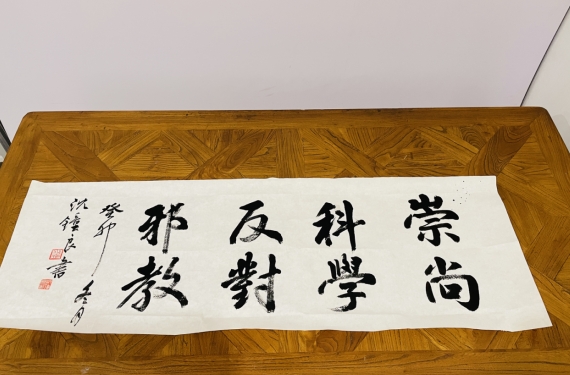 崇尚
科學
反對
邪教
癸卯冬月
沈鐘良書